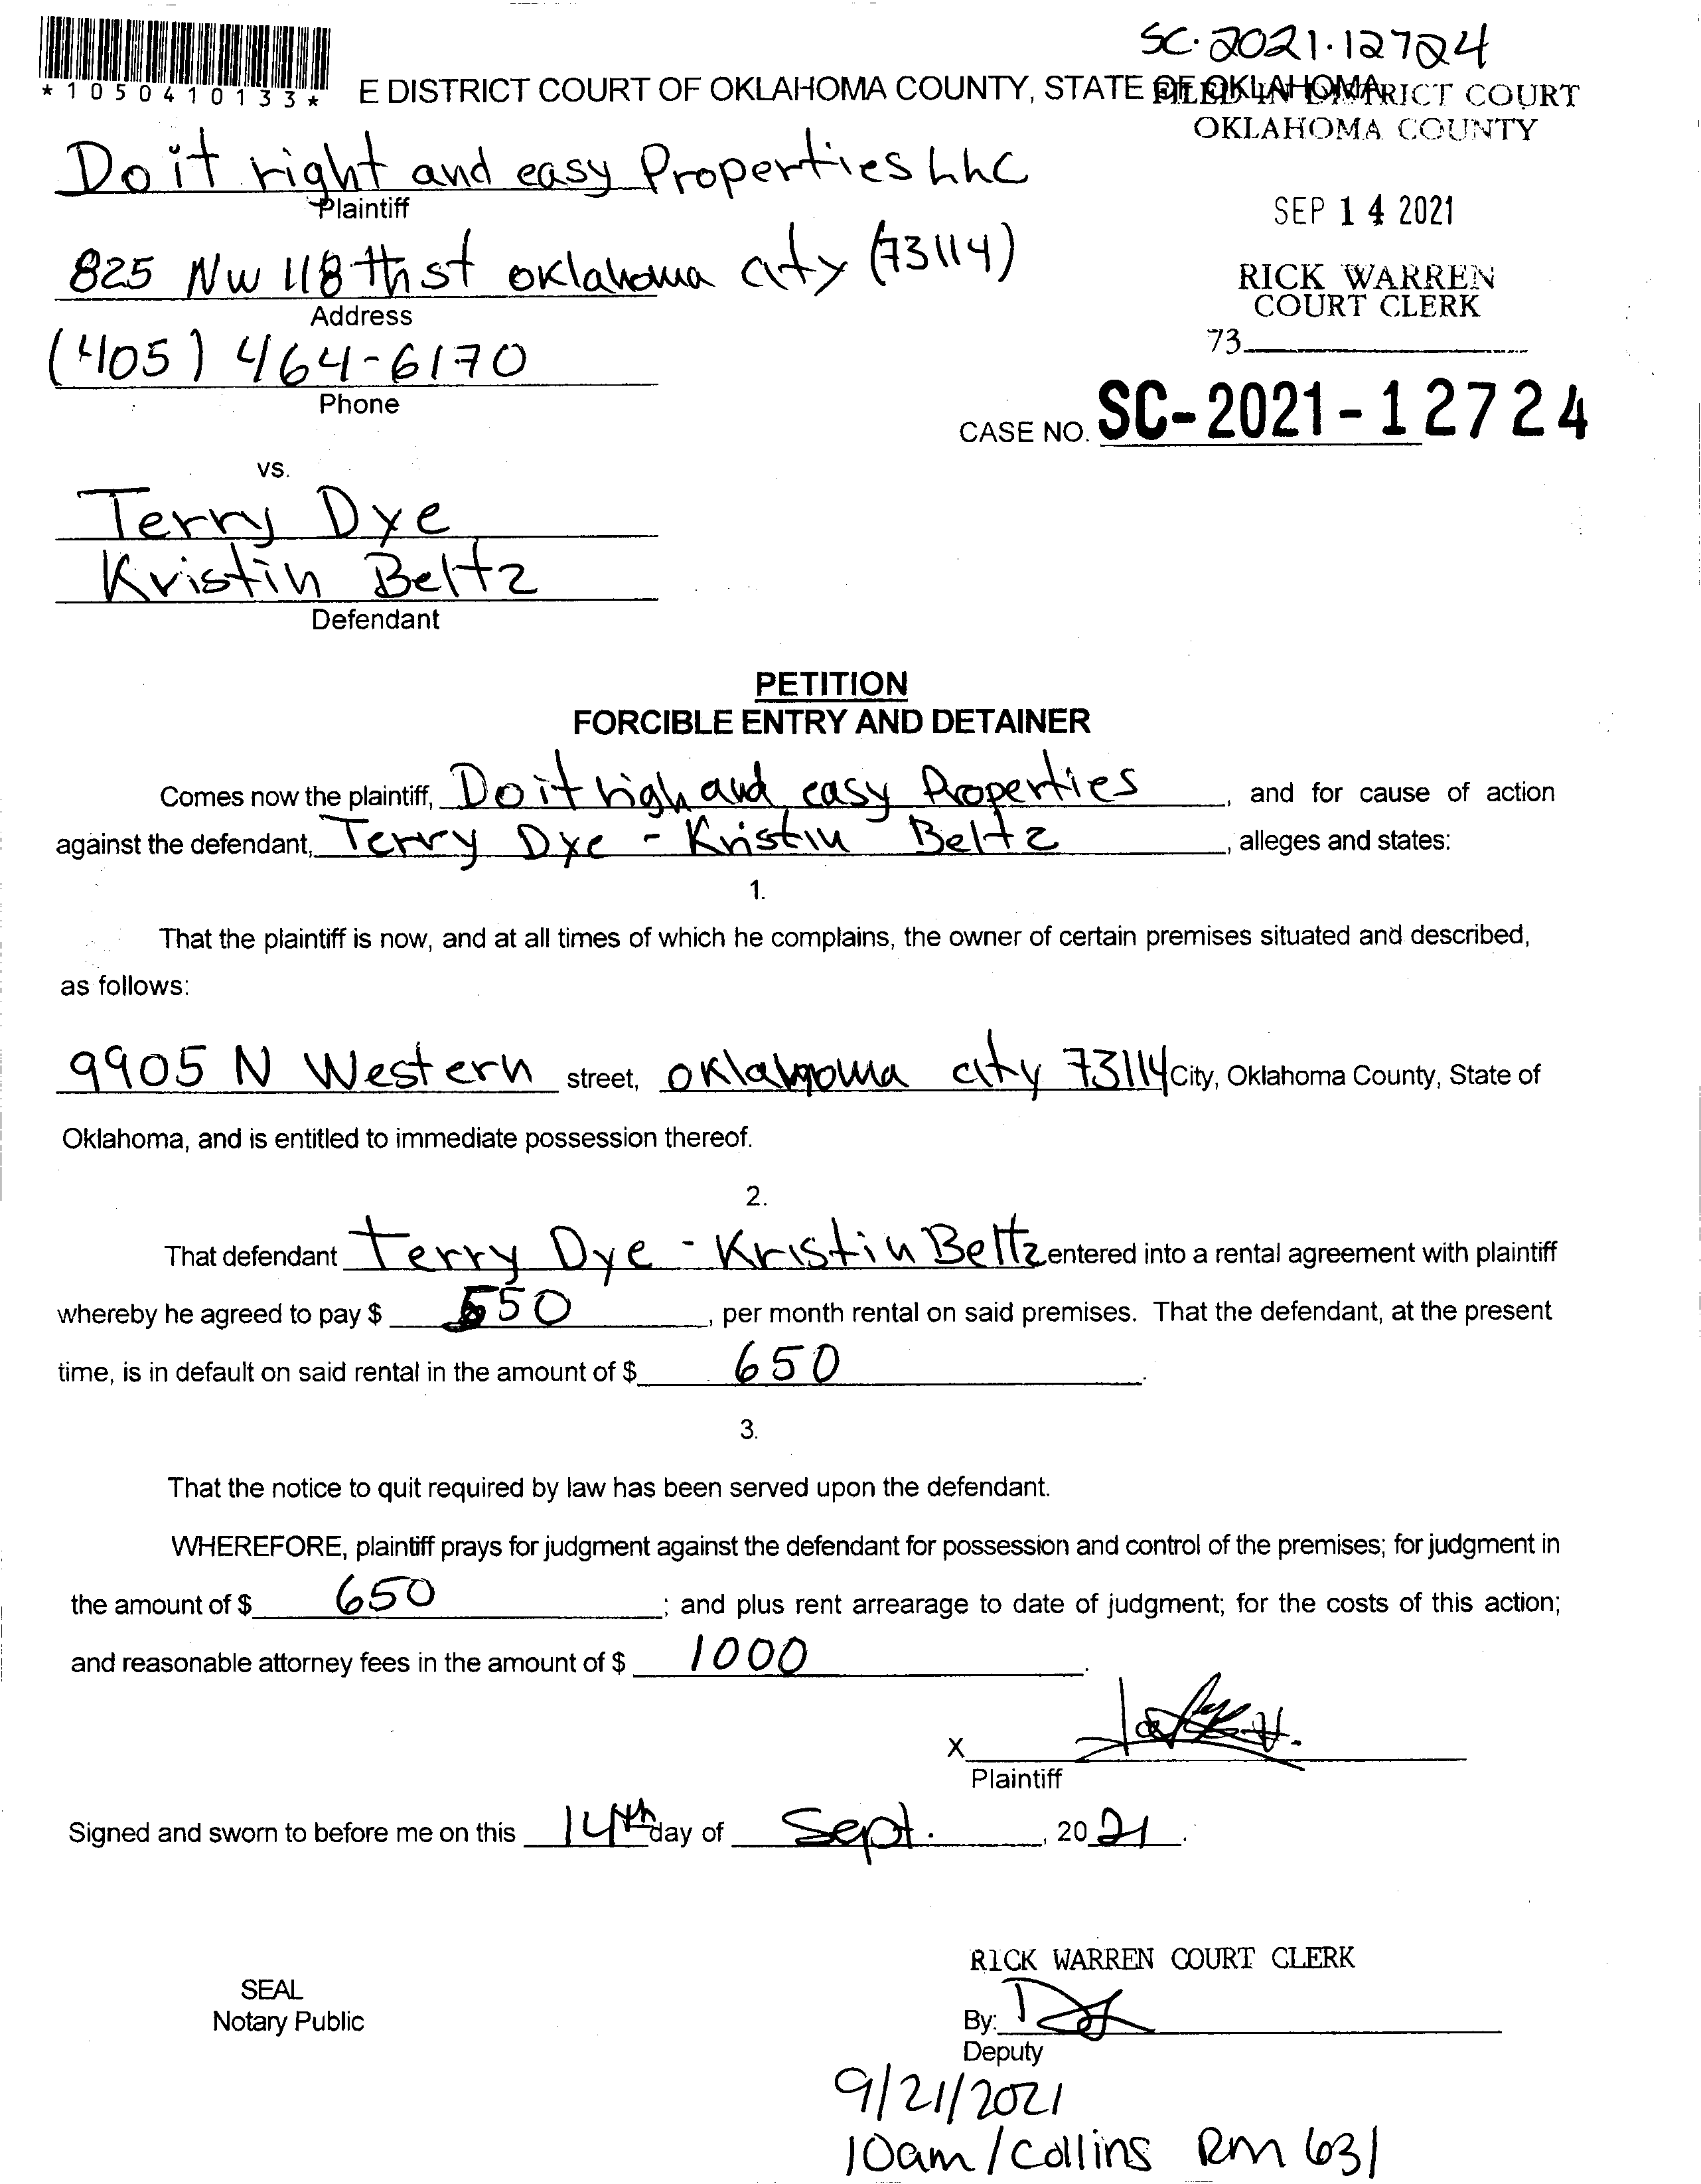 SC·2021·12724
*1050410133*
E DISTRICT COURT OF OKLAHOMA COUNTY, STATE OF OKLAHOMA
FILED IN DISTRICT COURT
OKLAHOMA COUNTY
Do it right and easy Properties LLC
Plaintiff
SEP 14 2021
825 NW 118 th st oklahoma city (73114)
Address
RICK WARREN
COURT CLERK
73
(405) 464-6170
Phone
CASE NO. SC-2021-12724
vs.
Terry Dye
Kristin Beltz
Defendant
PETITION
FORCIBLE ENTRY AND DETAINER
Comes now the plaintiff, Do it righ and easy Properties, and for cause of action
against the defendant, Terry Dye - Kristin Beltz, alleges and states:
1.
That the plaintiff is now, and at all times of which he complains, the owner of certain premises situated and described,
as follows:
9905 N Western street, oklahoma city 73114 City, Oklahoma County, State of
Oklahoma, and is entitled to immediate possession thereof.
2.
That defendant terry Dye - Kristin Beltz entered into a rental agreement with plaintiff
whereby he agreed to pay $ 550, per month rental on said premises. That the defendant, at the present
time, is in default on said rental in the amount of $ 650.
3.
That the notice to quit required by law has been served upon the defendant.
WHEREFORE, plaintiff prays for judgment against the defendant for possession and control of the premises; for judgment in
the amount of $ 650; and plus rent arrearage to date of judgment; for the costs of this action;
and reasonable attorney fees in the amount of $ 1000.
X
Plaintiff
Signed and sworn to before me on this 14th day of Sept., 2021.
RICK WARREN COURT CLERK
SEAL
Notary Public
By:
Deputy
9/21/2021
10am/Collins Rm 631